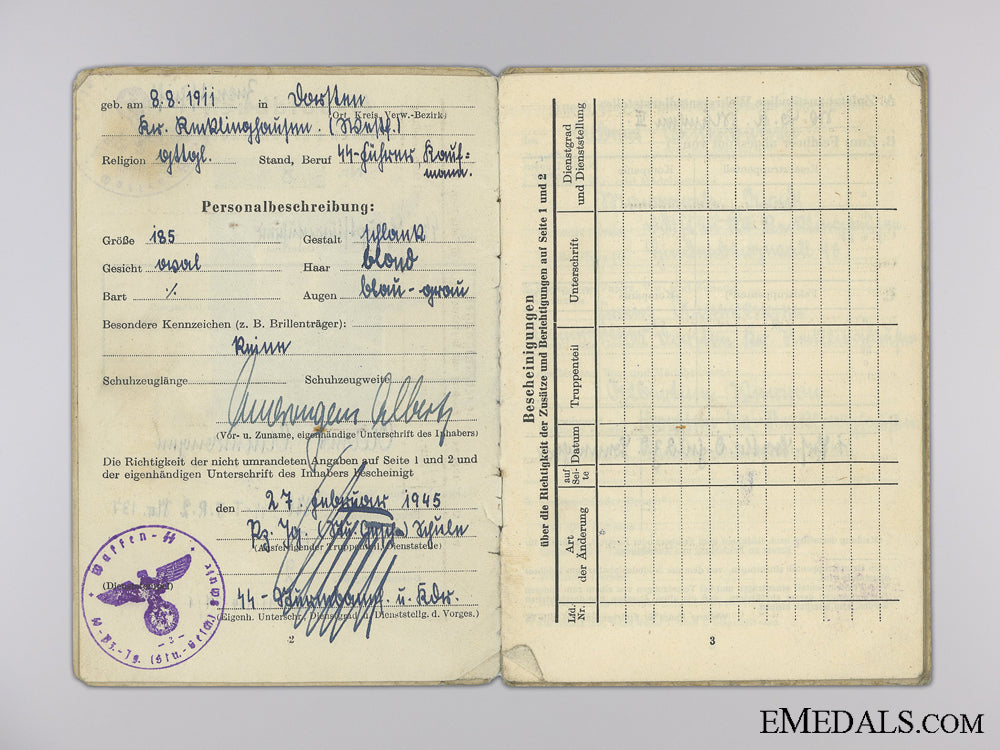 geb. am 8.8.1911 in Dorsten
(Ort, Kreis, Verw.-Bezirk)
Kr. Recklinghausen. (Westf.)
Religion gttgl. Stand, Beruf SS-Führer, Kauf=
mann.
Personalbeschreibung:
Größe 185 Gestalt schlank
Gesicht oval Haar blond
Bart ·/. Augen blau-grau
Besondere Kennzeichen (z. B. Brillenträger):
Keine
Schuhzeuglänge Schuhzeugweite
Albert
(Vor- u. Zuname, eigenhändige Unterschrift des Inhabers)
Die Richtigkeit der nicht umrandeten Angaben auf Seite 1 und 2 und
der eigenhändigen Unterschrift des Inhabers bescheinigt
den 27. Februar 1945
Pz. Jg. (Stu. Gesch.) Schule
(Ausfertigender Truppenteil, Dienststelle)
(Dienststempel)
SS-Sturmbannf. u. Kdr.
(Eigenh. Unterschr., Dienstgrad u. Dienststellg. d. Vorges.)
2
Waffen-SS
SS-Pz.-Jg. (Stu.-Gesch.) Schule
- 3 -
Bescheinigungen
über die Richtigkeit der Zusätze und Berichtigungen auf Seite 1 und 2
Lfd.
Nr.
Art
der Änderung
auf
Sei-
te
Datum
Truppenteil
Unterschrift
Dienstgrad
und Dienststellung
3
EMEDALS.COM